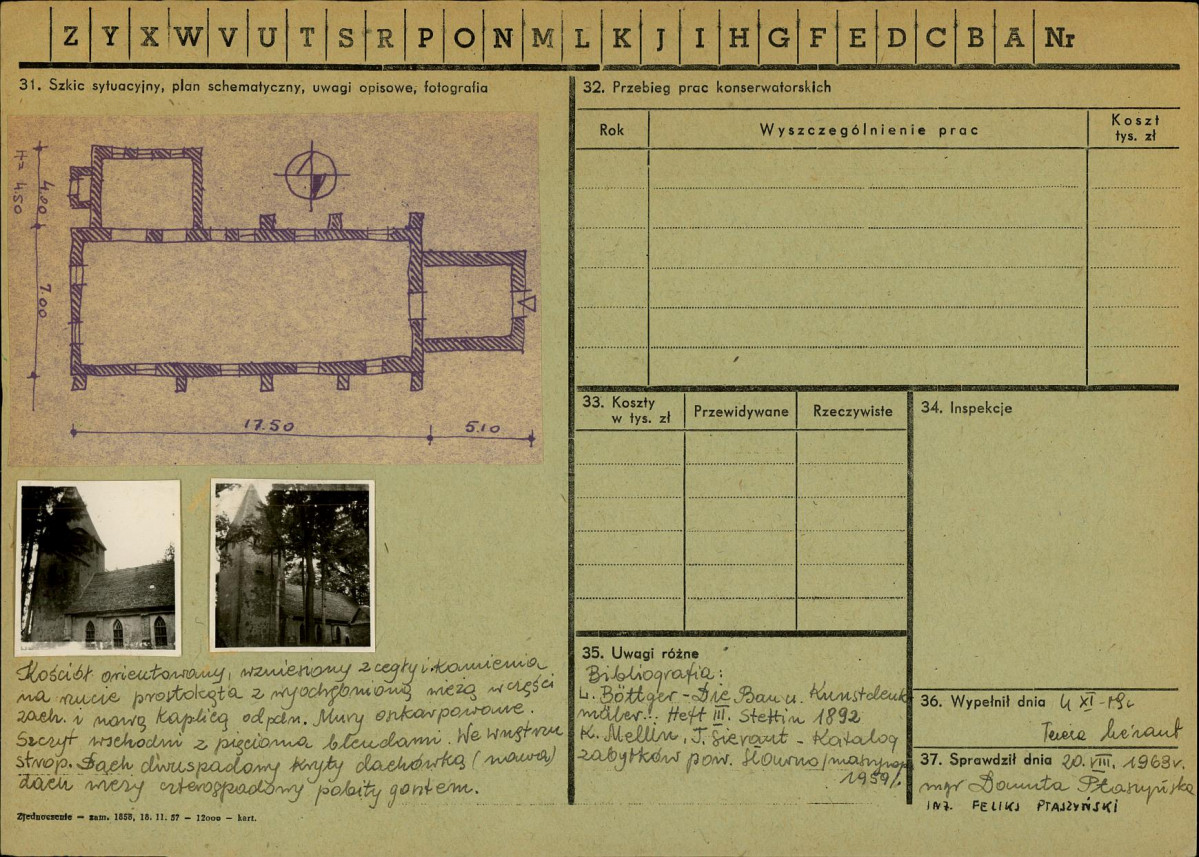 Z Y X W V U T S R P O N M L K J I H G F E D C B A Nr
31. Szkic sytuacyjny, plan schematyczny, uwagi opisowe, fotografia
H= 4.50
4.00
7.00
17.50
5.10
Kościół orientowany, wzniesiony z cegły i kamienia
na rzucie prostokąta z wyodrębnioną wieżą w części
zach. i nową kaplicą od płn. Mury oskarpowane.
Szczyt wschodni z pięcioma blendami. We wnętrzu
strop. Dach dwuspadowy kryty dachówką (nawa)
dach wieży czterospadowy pobity gontem.
Zjednoczenie — zam. 1858, 18. 11. 57 — 12000 — kart.
32. Przebieg prac konserwatorskich
Rok
Wyszczególnienie prac
Koszt
tys. zł
33. Koszty
w tys. zł
Przewidywane
Rzeczywiste
34. Inspekcje
35. Uwagi różne
Bibliografia:
L. Böttger - Die Bau u. Kunstdenk
mäler.: Heft III. Stettin 1892
K. Mellin, J. Sierant - Katalog
zabytków pow. Sławno /maszynop
1959/.
36. Wypełnił dnia
XI
Teresa
37. Sprawdził dnia 20. VIII. 1963r.
mgr Danuta Ptaszyńska
INŻ. FELIKS PTASZYŃSKI